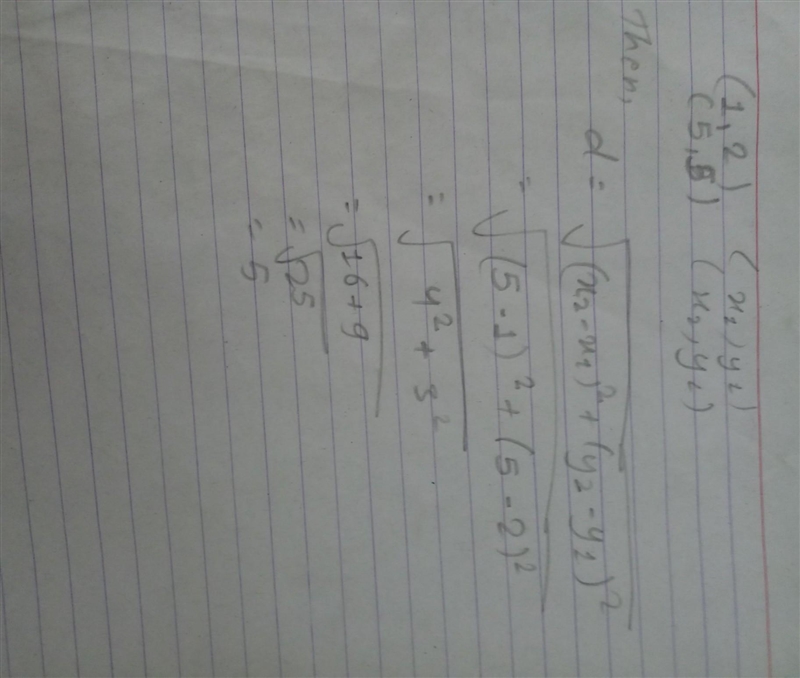 (1, 2) (x₁, y₁)
(5, 5) (x₂, y₂)
Then,
d = √(x₂ - x₁)² + (y₂ - y₁)²
= √(5 - 1)² + (5 - 2)²
= √4² + 3²
= √16 + 9
= √25
= 5